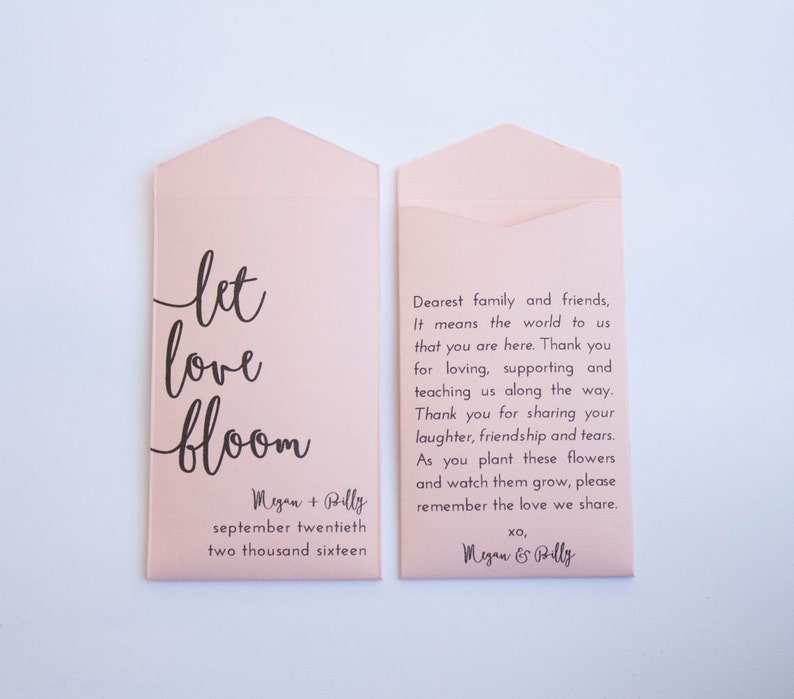 let
love
bloom
Megan + Billy
september twentieth
two thousand sixteen
Dearest family and friends,
It means the world to us
that you are here. Thank you
for loving, supporting and
teaching us along the way.
Thank you for sharing your
laughter, friendship and tears.
As you plant these flowers
and watch them grow, please
remember the love we share.
xo,
Megan & Billy